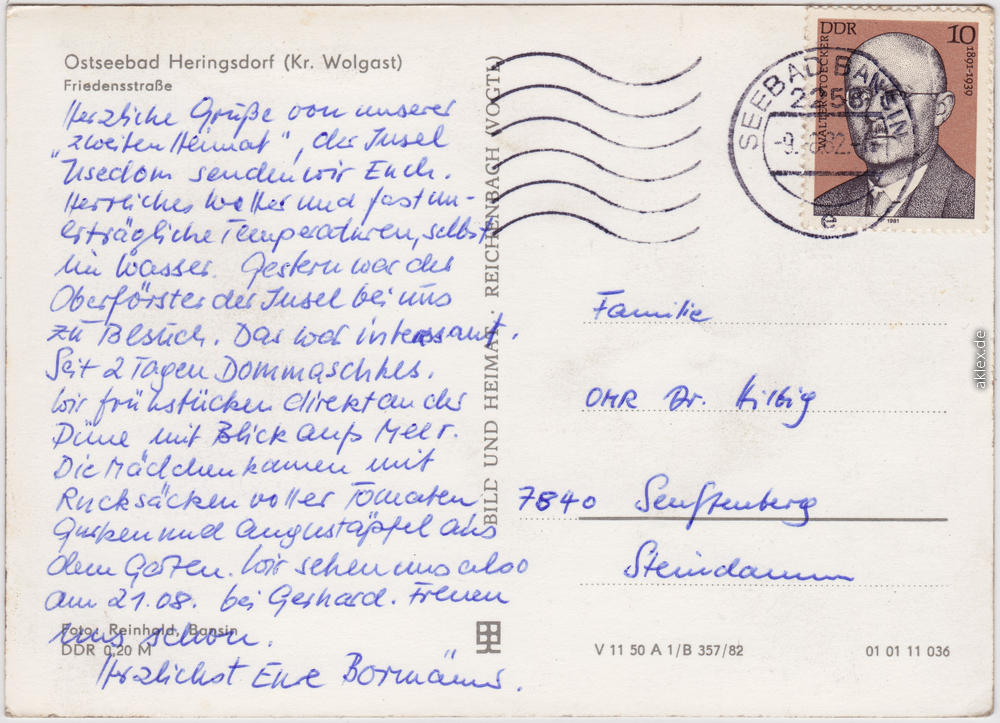 Ostseebad Heringsdorf (Kr. Wolgast)
Friedensstraße
Herzliche Grüße von unserer
"zweiten Heimat", der Insel
Usedom senden wir Euch.
Herrliches Wetter und fast un-
erträgliche Temperaturen, selbst
im Wasser. Gestern war der
Oberförster der Insel bei uns
zu Besuch. Das war interessant.
Seit 2 Tagen Dommaschkes.
Wir frühstücken direkt an der
Düne mit Blick aufs Meer.
Die Mädchen kamen mit
Rucksäcken voller Tomaten
Gurken und Augustäpfel aus
dem Garten. Wir sehen uns also
am 21.08. bei Gerhard. Freuen
uns schon.
Herzlichst Eure Bormänner.
Foto: Reinhold, Bansin
DDR 0,20 M
BILD UND HEIMAT · REICHENBACH (VOGTL)
SEEBAD BANSIN
2258
e
DDR 10
WALTER STOECKER
1891-1939
1981
Familie
OMR Dr. Hilbig
7840 Senftenberg
Steindamm
V 11 50 A 1/B 357/82
01 01 11 036
aklex.de